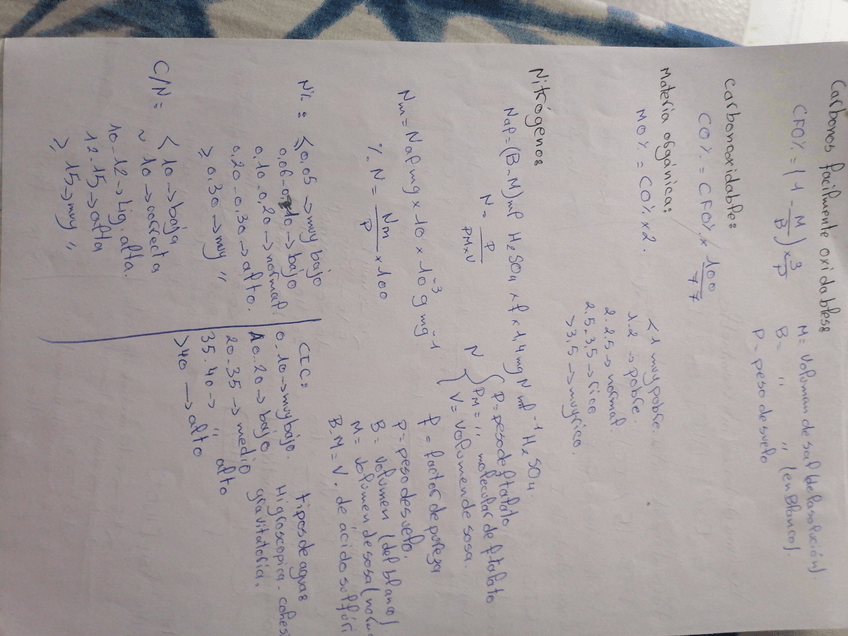 Carbonos facilmente oxidables:
CFO% = (1 - M/B) x 3/P
M = Volumen de sal (de la solución)
B = " " (en Blanco).
P = peso de suelo
carbonoxidable:
CO% = CFO% x 100/77
Materia orgánica:
MO% = CO% x 2.
< 1 muy pobre.
1.2 → pobre.
2.2,5 → normal
2.5-3,5 → rico
> 3,5 → muy rico.
Nitrógeno:
Nap = (B-M) ml H₂SO₄ x f x 1,4 mg N ml⁻¹ H₂SO₄
N = P/PM x V
N { P = peso de ftalato
PM = " molecular de ftalato
V = Volumen de sosa.
Nm = Nap mg x 10 x 10⁻³ g mg⁻¹
% N = Nm/P x 100
f = factor de pureza
P = peso de suelo.
B = Volumen (del blanco)
M = Volumen de sosa
B.M = V. de ácido sulfúri
N% = ≤ 0,05 → muy bajo
0,06-0,10 → bajo
0,10-0,20 → normal.
0,20-0,30 → alto.
≥ 0,30 → muy "
CIC:
0.10 → muy bajo.
10.20 → bajo
20.35 → medio
35.40 → " alto
>40 → alto
tipos de agua:
Higroscopica - cohes
gravitatoria.
C/N = < 10 → baja
~ 10 → correcta
10-12 → lig. alta.
12-15 → alta
≥ 15 → muy "